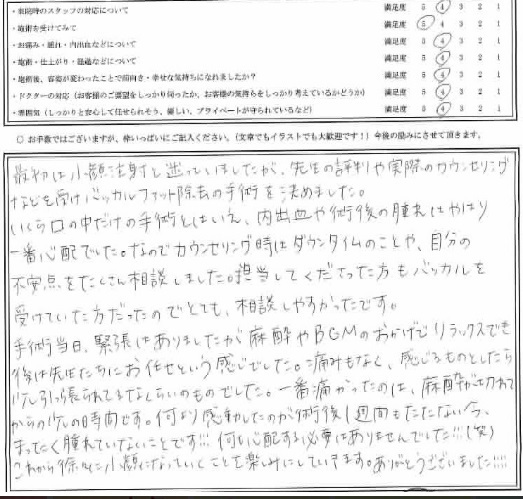 ・来院時のスタッフの対応について 満足度 5 4 3 2 1
・施術を受けてみて 満足度 5 4 3 2 1
・お痛み・腫れ・内出血などについて 満足度 5 4 3 2 1
・施術・仕上がり・経過などについて 満足度 5 4 3 2 1
・施術後、容姿が変わったことで前向き・幸せな気持ちになれましたか? 満足度 5 4 3 2 1
・ドクターの対応(お客様のご要望をしっかり伺ったか、お客様の気持ちをしっかり考えているかどうか) 満足度 5 4 3 2 1
・雰囲気(しっかりと安心して任せられそう、優しい、プライベートが守られているなど) 満足度 5 4 3 2 1
○ お手数ではございますが、枠いっぱいにご記入ください。(文章でもイラストでも大歓迎です!)今後の励みにさせて頂きます。
最初は小顔注射と迷っていましたが、先生の評判や実際のカウンセリング
などを受けバッカルファット除去の手術を決めました。
いくら口の中だけの手術とはいえ、内出血や術後の腫れはやはり
一番心配でした。なのでカウンセリング時はダウンタイムのことや、自分の
不安点をたくさん相談しました。担当してくださった方もバッカルを
受けていた方だったのでとても、相談しやすかったです。
手術当日、緊張はありましたが麻酔やBGMのおかげでリラックスでき
後は先生たちにお任せという感じでした。痛みもなく、感じるものとしたら
少し引っ張られてるなくらいのものでした。一番痛かったのは、麻酔が切れて
からの少しの時間です。何より感動したのが術後1週間もたたない今、
まったく腫れていないことです!!! 何も心配する必要はありませんでした!!!(笑)
これから徐々に小顔になっていくことを楽しみにしています。ありがとうございました!!!!